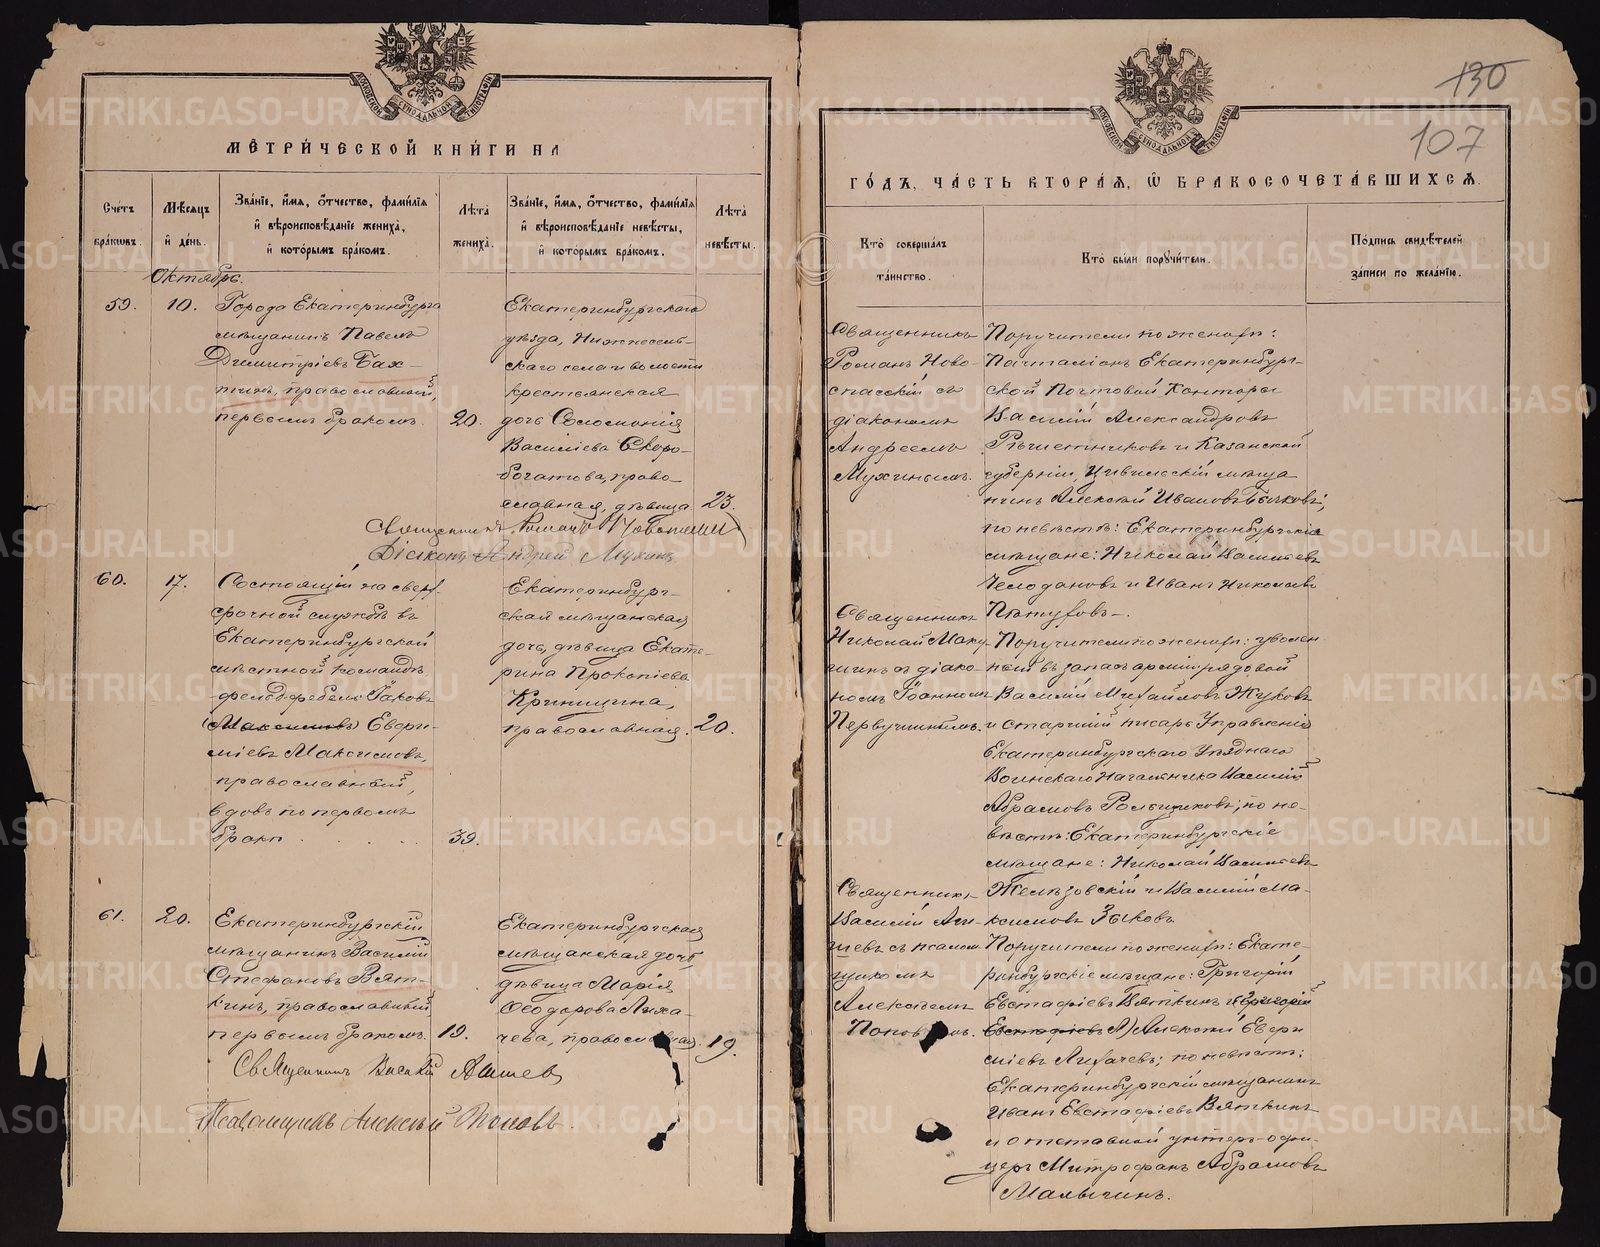 МОСКОВСКОЙ СѴНОДАЛЬНОЙ ТИПОГРАФІИ
МЕТРИ́ЧЕСКОЙ КНИ́ГИ НА
Сче́тъ бра́кѡвъ.
Мѣ́сяцъ и де́нь.
Зва́нїе, и́мя, о́тчество, фами́лїя и вѣроисповѣ́данїе жениха̀, и кото́рымъ бра́комъ.
Лѣ́та жениха̀.
Зва́нїе, и́мя, о́тчество, фами́лїя и вѣроисповѣ́данїе невѣ́сты, и кото́рымъ бра́комъ.
Лѣ́та невѣ́сты.
Октябрь.
59.
10.
Города Екатеринбурга
мѣщанинъ Павелъ
Димитріевъ Бах-
тинъ, православный,
первымъ бракомъ.
20.
Екатеринбургскаго
уѣзда, Нижнесель-
скаго села и волости
крестьянская
дочь Соломонія
Василіева Скоро-
богатова, право-
славная, дѣвица
23.
Священникъ Романъ Новоспасскій
Діаконъ Андрей Мухинъ
60.
17.
Состоящій на сверх-
срочной службѣ въ
Екатеринбургской
мѣстной командѣ
фельдфебель Іаковъ
(Максимовъ) Евѳи-
міевъ Максимовъ,
православный,
вдовъ по первомъ
бракѣ
39.
Екатеринбург-
ская мѣщанская
дочь, дѣвица Екате-
рина Прокопіева
Криницина,
православная.
20.
61.
20.
Екатеринбургскій
мѣщанинъ Василій
Стефановъ Вят-
кинъ, православный
первымъ бракомъ.
19.
Екатеринбургская
мѣщанская дочь,
дѣвица Марія
Ѳеодорова Лиха-
чева, православная.
19.
Священникъ Василій
Псаломщикъ Алексѣй Поповъ.
130
107
МОСКОВСКОЙ СѴНОДАЛЬНОЙ ТИПОГРАФІИ
ГО́ДЪ, ЧА́СТЬ ВТОРА́Я, Ѡ БРАКОСОЧЕТА́ВШИХСЯ.
Кто̀ соверша́лъ та́инство.
Кто̀ бы́ли поручи́тели.
По́дпись свидѣ́телей за́писи по жела́нїю.
Священникъ
Романъ Ново-
спасскій съ
діакономъ
Андреемъ
Мухинымъ.
Поручители по женихѣ:
Почталіонъ Екатеринбург-
ской Почтовой Конторы
Василій Александровъ
Рѣшетниковъ и Казанской
губерніи, Цивильскій мѣща
нинъ Алексѣй Ивановъ Бычковъ;
по невѣстѣ: Екатеринбургскіе
мѣщане: Николай Васильевъ
Чемодановъ и Иванъ Николаевъ
Пѣтуховъ.
Священникъ
Николай Маку-
шинъ съ діако-
номъ Іоанномъ
Первушинымъ.
Поручители по женихѣ: уволен
ный въ запасъ арміи рядовой
Василій Михайловъ Жуковъ
и старшій писарь Управленія
Екатеринбургскаго Уѣзднаго
Воинскаго Начальника Василій
Абрамовъ Рольщиковъ; по не-
вѣстѣ: Екатеринбургскіе
мѣщане: Николай Васильевъ
Желѣзовскій и Василій Ма-
ксимовъ Зыковъ
Священникъ
Василій
съ псалом-
щикомъ
Алексѣемъ
Поповымъ.
Поручители по женихѣ: Екате-
ринбургскіе мѣщане: Григорій
Евстафіевъ Вяткинъ и (Григорій
Евстафіевъ) Алексѣй Евѳи
міевъ Лихачевъ; по невѣстѣ:
Екатеринбургскій мѣщанинъ
Иванъ Евстафіевъ Вяткинъ
и отставной унтеръ-офи-
церъ Митрофанъ Абрамовъ
Малыгинъ.
METRIKI.GASO-URAL.RU